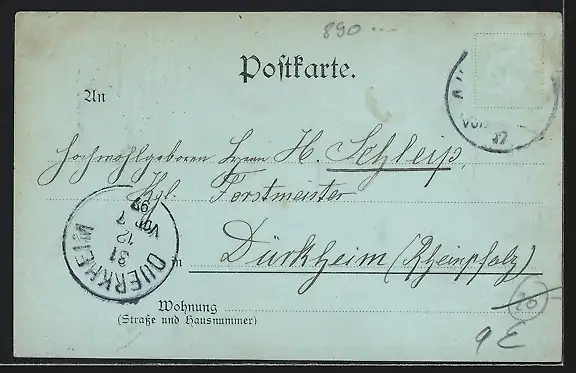 890
Postkarte.
An
Hochwohlgeboren Herrn H. Schleip,
Kgl. Forstmeister
in Dürkheim (Rheinpfalz)
Wohnung
(Straße und Hausnummer)
DUERKHEIM
31
12
VOR. 7
97
97
9 E